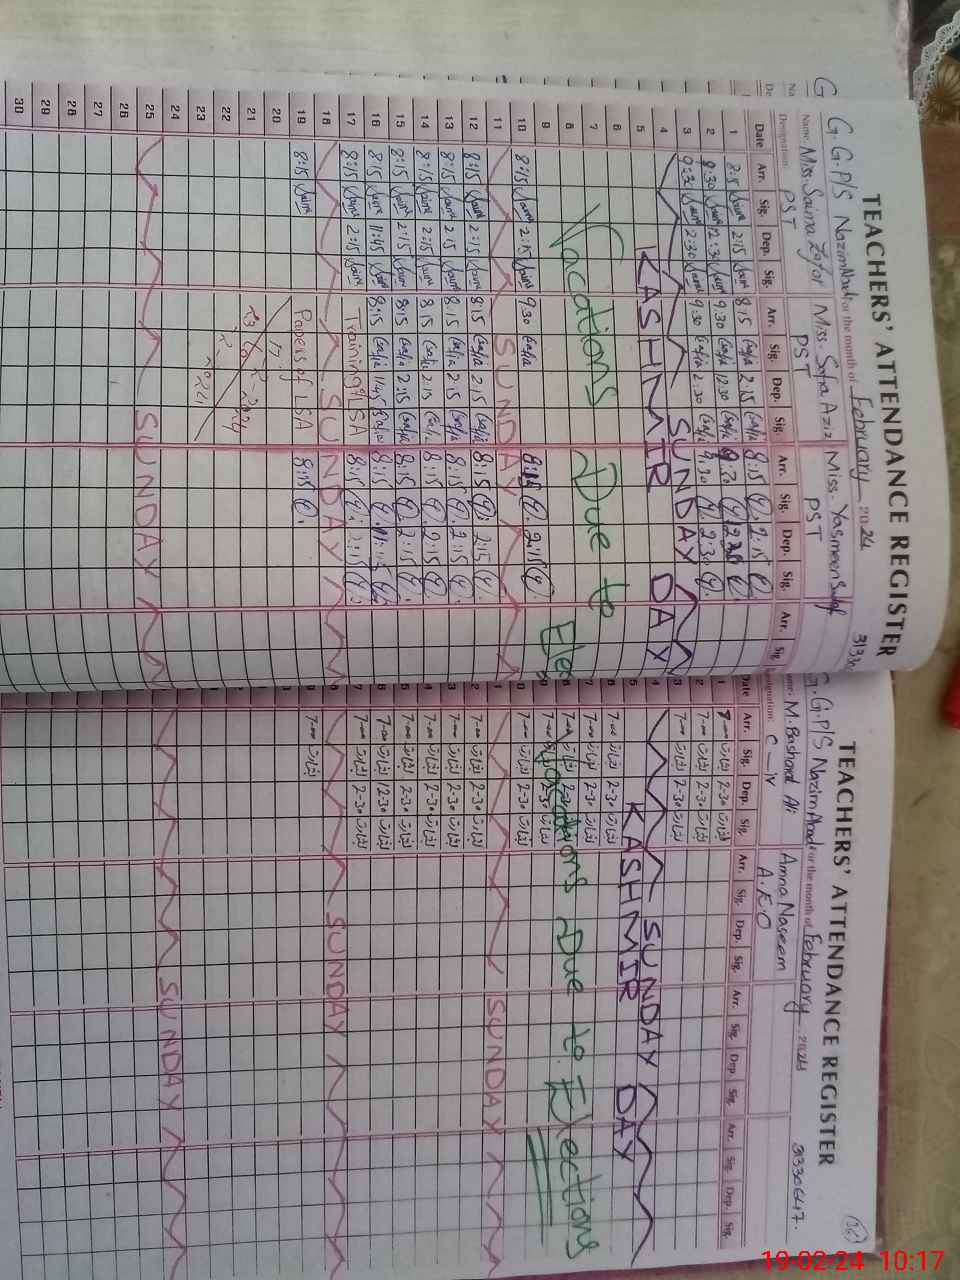 TEACHERS' ATTENDANCE REGISTER
G.G.P/S Nazim Abad for the month of February 2024
Name: Miss. Saima Zafar Miss. Safia Aziz Miss. Yasmeen
Designation: PST PST PST
Date Arr. Sig. Dep. Sig. Arr. Sig. Dep. Sig. Arr. Sig. Dep. Sig. Arr. Sig.
1 8:15 Saima 2:15 Saima 8:15 Safia 2:15 Safia 8:15 2:15
2 9:30 Saima 12:30 Saima 9.30 Safia 12.30 Safia 9:30 12:30
3 9:30 Saima 2:30 Saima 9.30 Safia 2.30 Safia 9.30 2.30
4 SUNDAY
5 KASHMIR DAY
6
7 Vacations Due to Ele
8
9
10 8:15 Saima 2:15 Saima 9.30 Safia 8:15 2:15
11 SUNDAY
12 8:15 Saima 2:15 Saima 8:15 Safia 2:15 Safia 8:15 2:15
13 8:15 Saima 2:15 Saima 8:15 Safia 2:15 Safia 8:15 2:15
14 8:15 Saima 2:15 Saima 8:15 Safia 2:15 Safia 8:15 2:15
15 8:15 Saima 2:15 Saima 8:15 Safia 2:15 Safia 8:15 2:15
16 8:15 Saima 11:45 Saima 8:15 Safia 11:45 Safia 8:15 11:45
17 8:15 Saima 2:15 Saima Training of LSA 8:15 2:15
18 SUNDAY
19 8:15 Saima Papers of LSA 8:15
20
21
22
23
24
25 SUNDAY
26
27
28
29
30
TEACHERS' ATTENDANCE REGISTER
G.G.P/S Nazim Abad for the month of February 2024 31330647.
Name: M. Basharat Ali Amna Naseem
Designation: C-iv A.E.O
Date Arr. Sig. Dep. Sig. Arr. Sig. Dep. Sig. Arr. Sig. Dep. Sig. Arr. Sig. Dep. Sig.
1 7-00 بشارت 2-30 بشارت
2 7-00 بشارت 2-30 بشارت
3 7-00 بشارت 2-30 بشارت
4 SUNDAY
5 KASHMIR DAY
6 7-00 بشارت 2-30 بشارت
7 7-00 بشارت 2-30 بشارت
8 7-00 بشارت 2-30 بشارت
Vacations Due to Elections
9 7-00 2-30 بشارت
0 7-00 بشارت 2-30 بشارت
1 SUNDAY
2 7-00 بشارت 2-30 بشارت
3 7-00 بشارت 2-30 بشارت
4 7-00 بشارت 2-30 بشارت
5 7-00 بشارت 2-30 بشارت
6 7-00 بشارت 12-30 بشارت
7 7-00 بشارت 2-30 بشارت
SUNDAY
7-00 بشارت
SUNDAY
19-02-24 10:17